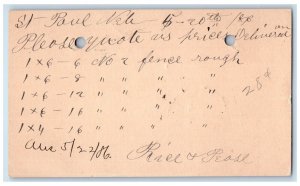 St Paul Neb 5-20th/86
Please quote us prices Delivered on
1 x 6 - 6 No 2 fence rough
1 x 6 - 8 " " " "
1 x 6 - 12 " " " "
1 x 6 - 16 " " " "
1 x 4 - 16 " " " "
28¢
Ans 5/22/86
Rice & Rose